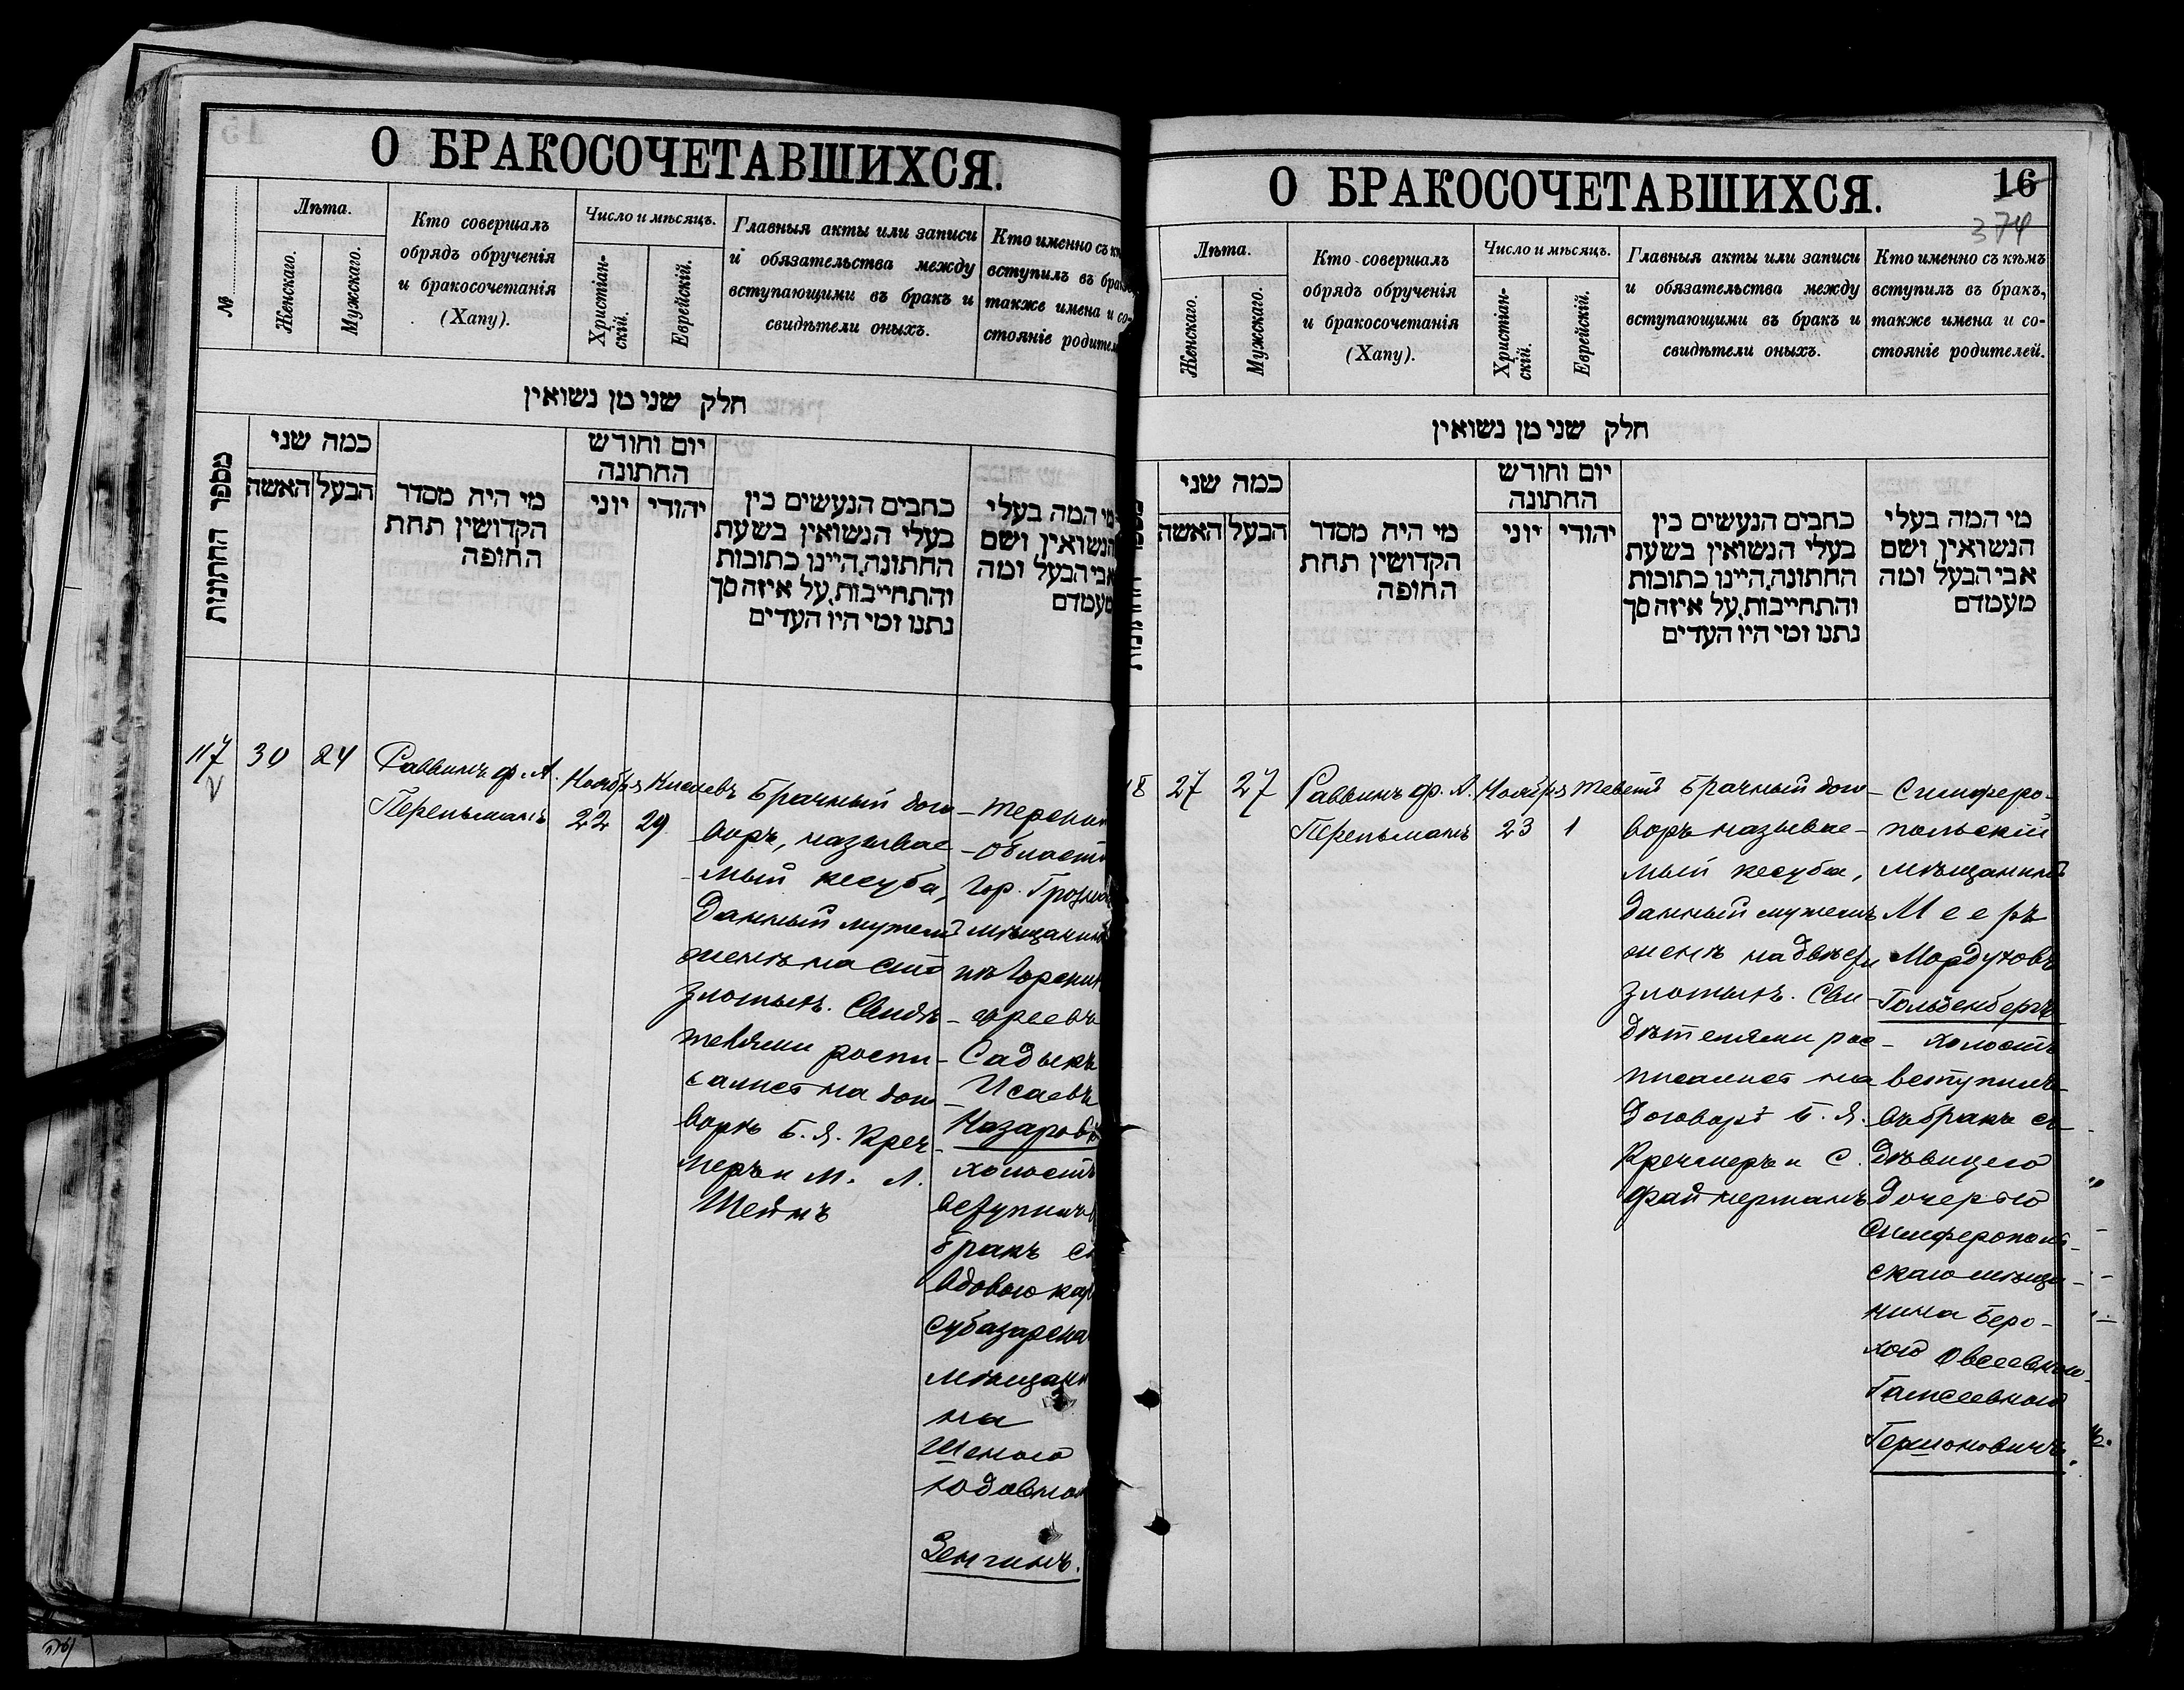 О БРАКОСОЧЕТАВШИХСЯ.
№
Лѣта.
Женскаго.
Мужскаго.
Кто совершалъ
обрядъ обрученія
и бракосочетанія
(Хапу).
Число и мѣсяцъ.
Христіан-
скій.
Еврейскій.
Главныя акты или записи
и обязательства между
вступающими въ бракъ и
свидѣтели оныхъ.
Кто именно съ
вступилъ въ
также имена и со-
стояніе
חלק שני מן נשואין
מספר החתונות
כמה שני
האשה
הבעל
מי היה מסדר
הקדושין תחת
החופה
יום וחודש
החתונה
יוני
יהודי
כתבים הנעשים בין
בעלי הנשואין בשעת
החתונה, היינו כתובות
והתחייבות, על איזה סך
נתנו ומי היו העדים
מי המה בעלי
הנשואין, ושם
אבי הבעל ומה
מעמדם
117
30
24
Раввинъ ф. А.
Перельманъ
Ноября
22
Кислевъ
29
Брачный дого-
воръ, называе-
мый кесуба,
данный мужемъ
женѣ на сто
злотыхъ. Свидѣ-
телями роспи-
сались на дого-
ворѣ Б. Я. Креч-
меръ и М. Л.
Штейнъ
Област
гор. Грозна
мѣщанинъ
изъ горских
евреевъ
Садыкъ
Исаевъ
Назаровъ
холостъ
вступилъ
бракъ съ
вдовою
субазарска
мѣщани
на
Зенгинъ.
О БРАКОСОЧЕТАВШИХСЯ.
16
374
Лѣта.
Женскаго.
Мужскаго.
Кто совершалъ
обрядъ обрученія
и бракосочетанія
(Хапу).
Число и мѣсяцъ.
Христіан-
скій.
Еврейскій.
Главныя акты или записи
и обязательства между
вступающими въ бракъ и
свидѣтели оныхъ.
Кто именно съ кѣмъ
вступилъ въ бракъ,
также имена и со-
стояніе родителей.
חלק שני מן נשואין
כמה שני
האשה
הבעל
מי היה מסדר
הקדושין תחת
החופה
יום וחודש
החתונה
יוני
יהודי
כתבים הנעשים בין
בעלי הנשואין בשעת
החתונה, היינו כתובות
והתחייבות, על איזה סך
נתנו ומי היו העדים
מי המה בעלי
הנשואין, ושם
אבי הבעל ומה
מעמדם
18
27
27
Раввинъ ф. А.
Перельманъ
Ноября
23
Теветъ
1
Брачный дого-
воръ называе-
мый кесуба,
данный мужемъ
женѣ на двѣсти
злотыхъ. Сви-
дѣтелями рос-
писались на
договорѣ Б. Я.
Кречмеръ и С.
Файнерманъ
Симферо-
польскій
мѣщанинъ
Мееръ
Мордуховъ
Гольденбергъ
холостъ
вступилъ
въ бракъ съ
дѣвицею
дочерью
Симферополь-
скаго мѣща-
нина Беро-
Овсеевною
Гершоновичъ.